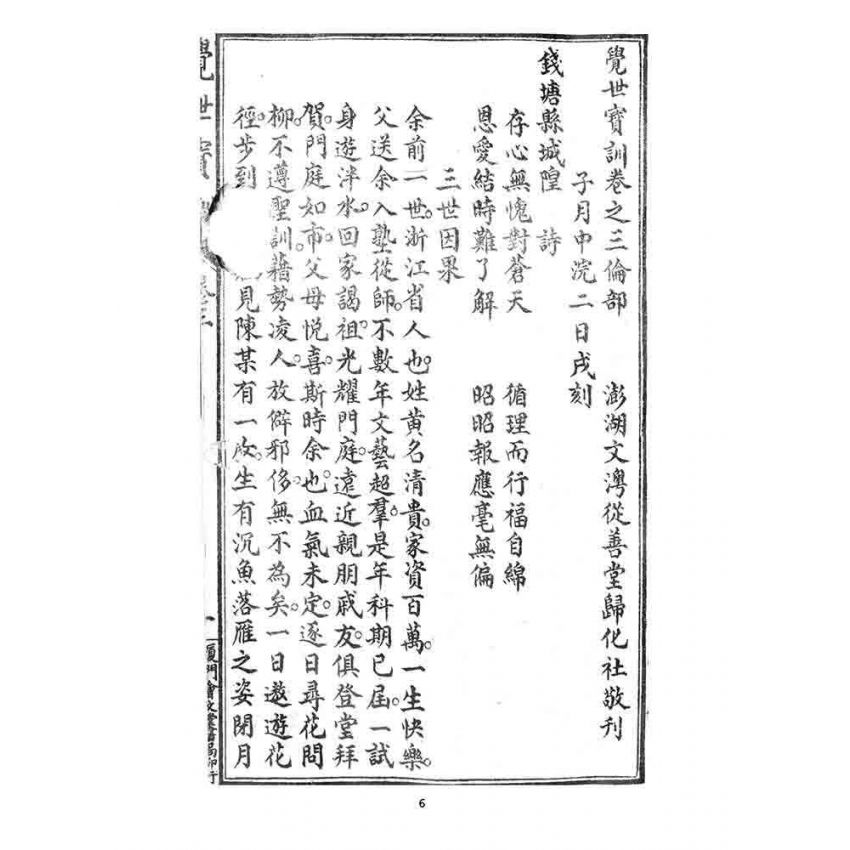 覺世寶訓卷之三倫部　澎湖文灣從善堂歸化社敬刊
子月中浣二日戌刻
錢塘縣城隍　詩
存心無愧對蒼天　循理而行福自綿
恩愛結時難了解　昭昭報應毫無偏
三世因果
余前一世。浙江省人也。姓黄名清貴。家資百萬。一生快樂。
父送余入塾從師。不數年文藝超羣。是年科期已屆。一試
身遊泮水。回家謁祖。光耀門庭。遠近親朋戚友。俱登堂拜
賀。門庭如市。父母悦喜。斯時余也。血氣未定。逐日尋花問
柳。不遵聖訓。藉勢凌人。放僻邪侈。無不為矣。一日遨遊花
徑。步到見陳某有一女。生有沉魚落雁之姿閉月
覺世寶卷三
一
廈門會文堂書局印行
6